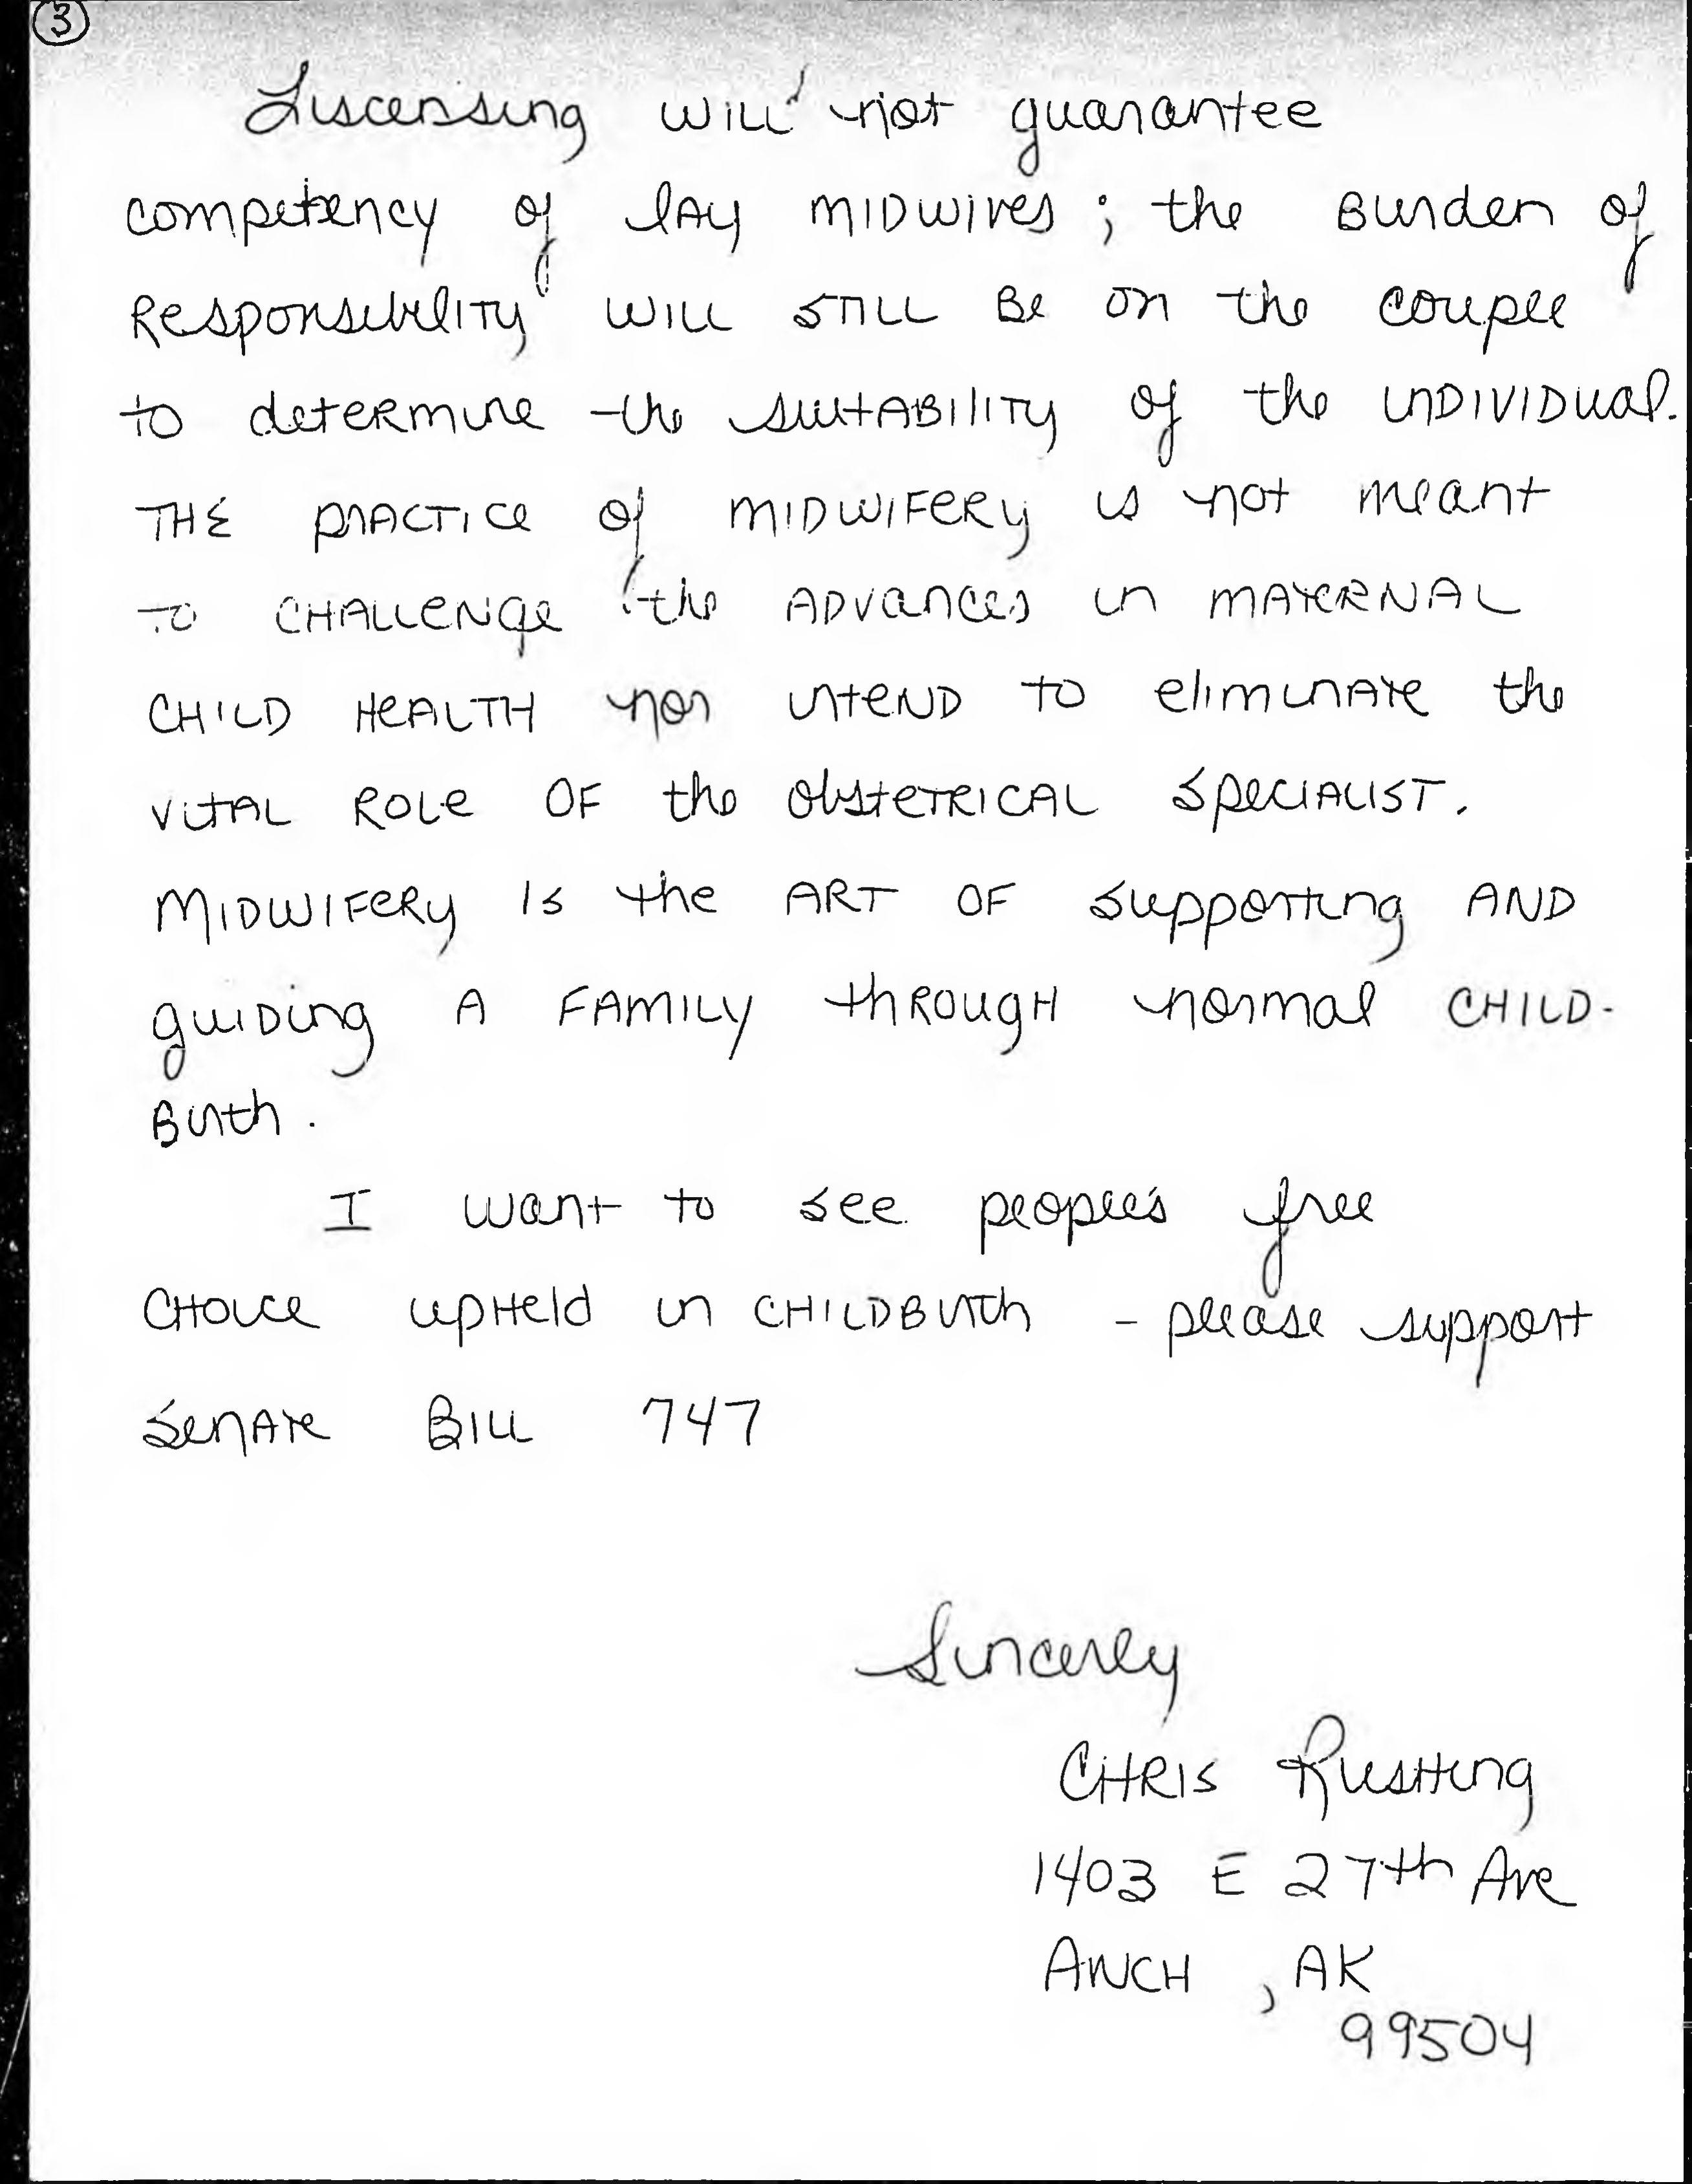 3
Liscensing will not guarantee
competency of lAy MIDwives ; the Burden of
Responsibility will STILL Be on the couple
to deteRmine the suitABility of the inDIVIDual.
THE pRACTice of MIDWIFeRy is not meant
TO CHALLeNge the ADvances in MATeRNAL
CHILD HeALTH nor inteND TO eliminAte the
VitAL ROLe OF the obsteTRICAL SpeciALIST.
MIDWIFeRy Is the ART OF supporting AND
guiDing A FAMILY thRougH normal CHILD-
Birth.
I want to see people's free
CHoice upHeld in CHILDBirth - please support
SenAte BILL 747
Sincerly
CHRIS RusHing
1403 E 27th Ave
ANCH , AK
99504